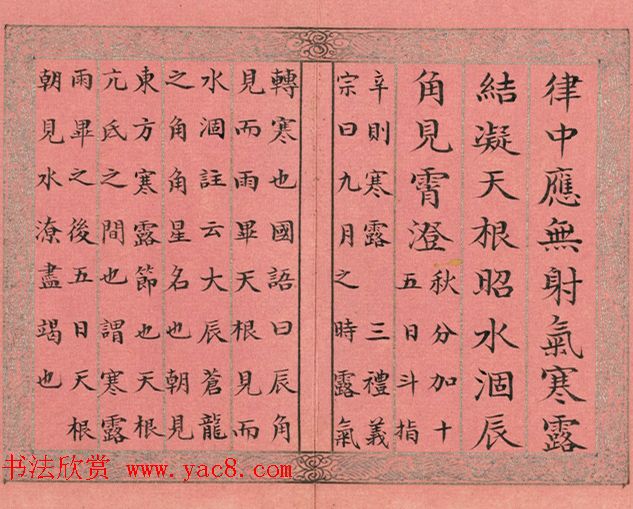 律中應無射氣寒露
結凝天根昭水涸辰
角見霄澄
秋分加十
五日斗指
辛則寒露 三禮義
宗曰九月之時露氣
轉寒也國語曰辰角
見而雨畢天根見而
水涸註云大辰蒼龍
之角角星名也朝見
東方寒露節也天根
亢氐之間也謂寒露
雨畢之後五日天根
朝見水潦盡竭也
书法欣赏 www.yac8.com